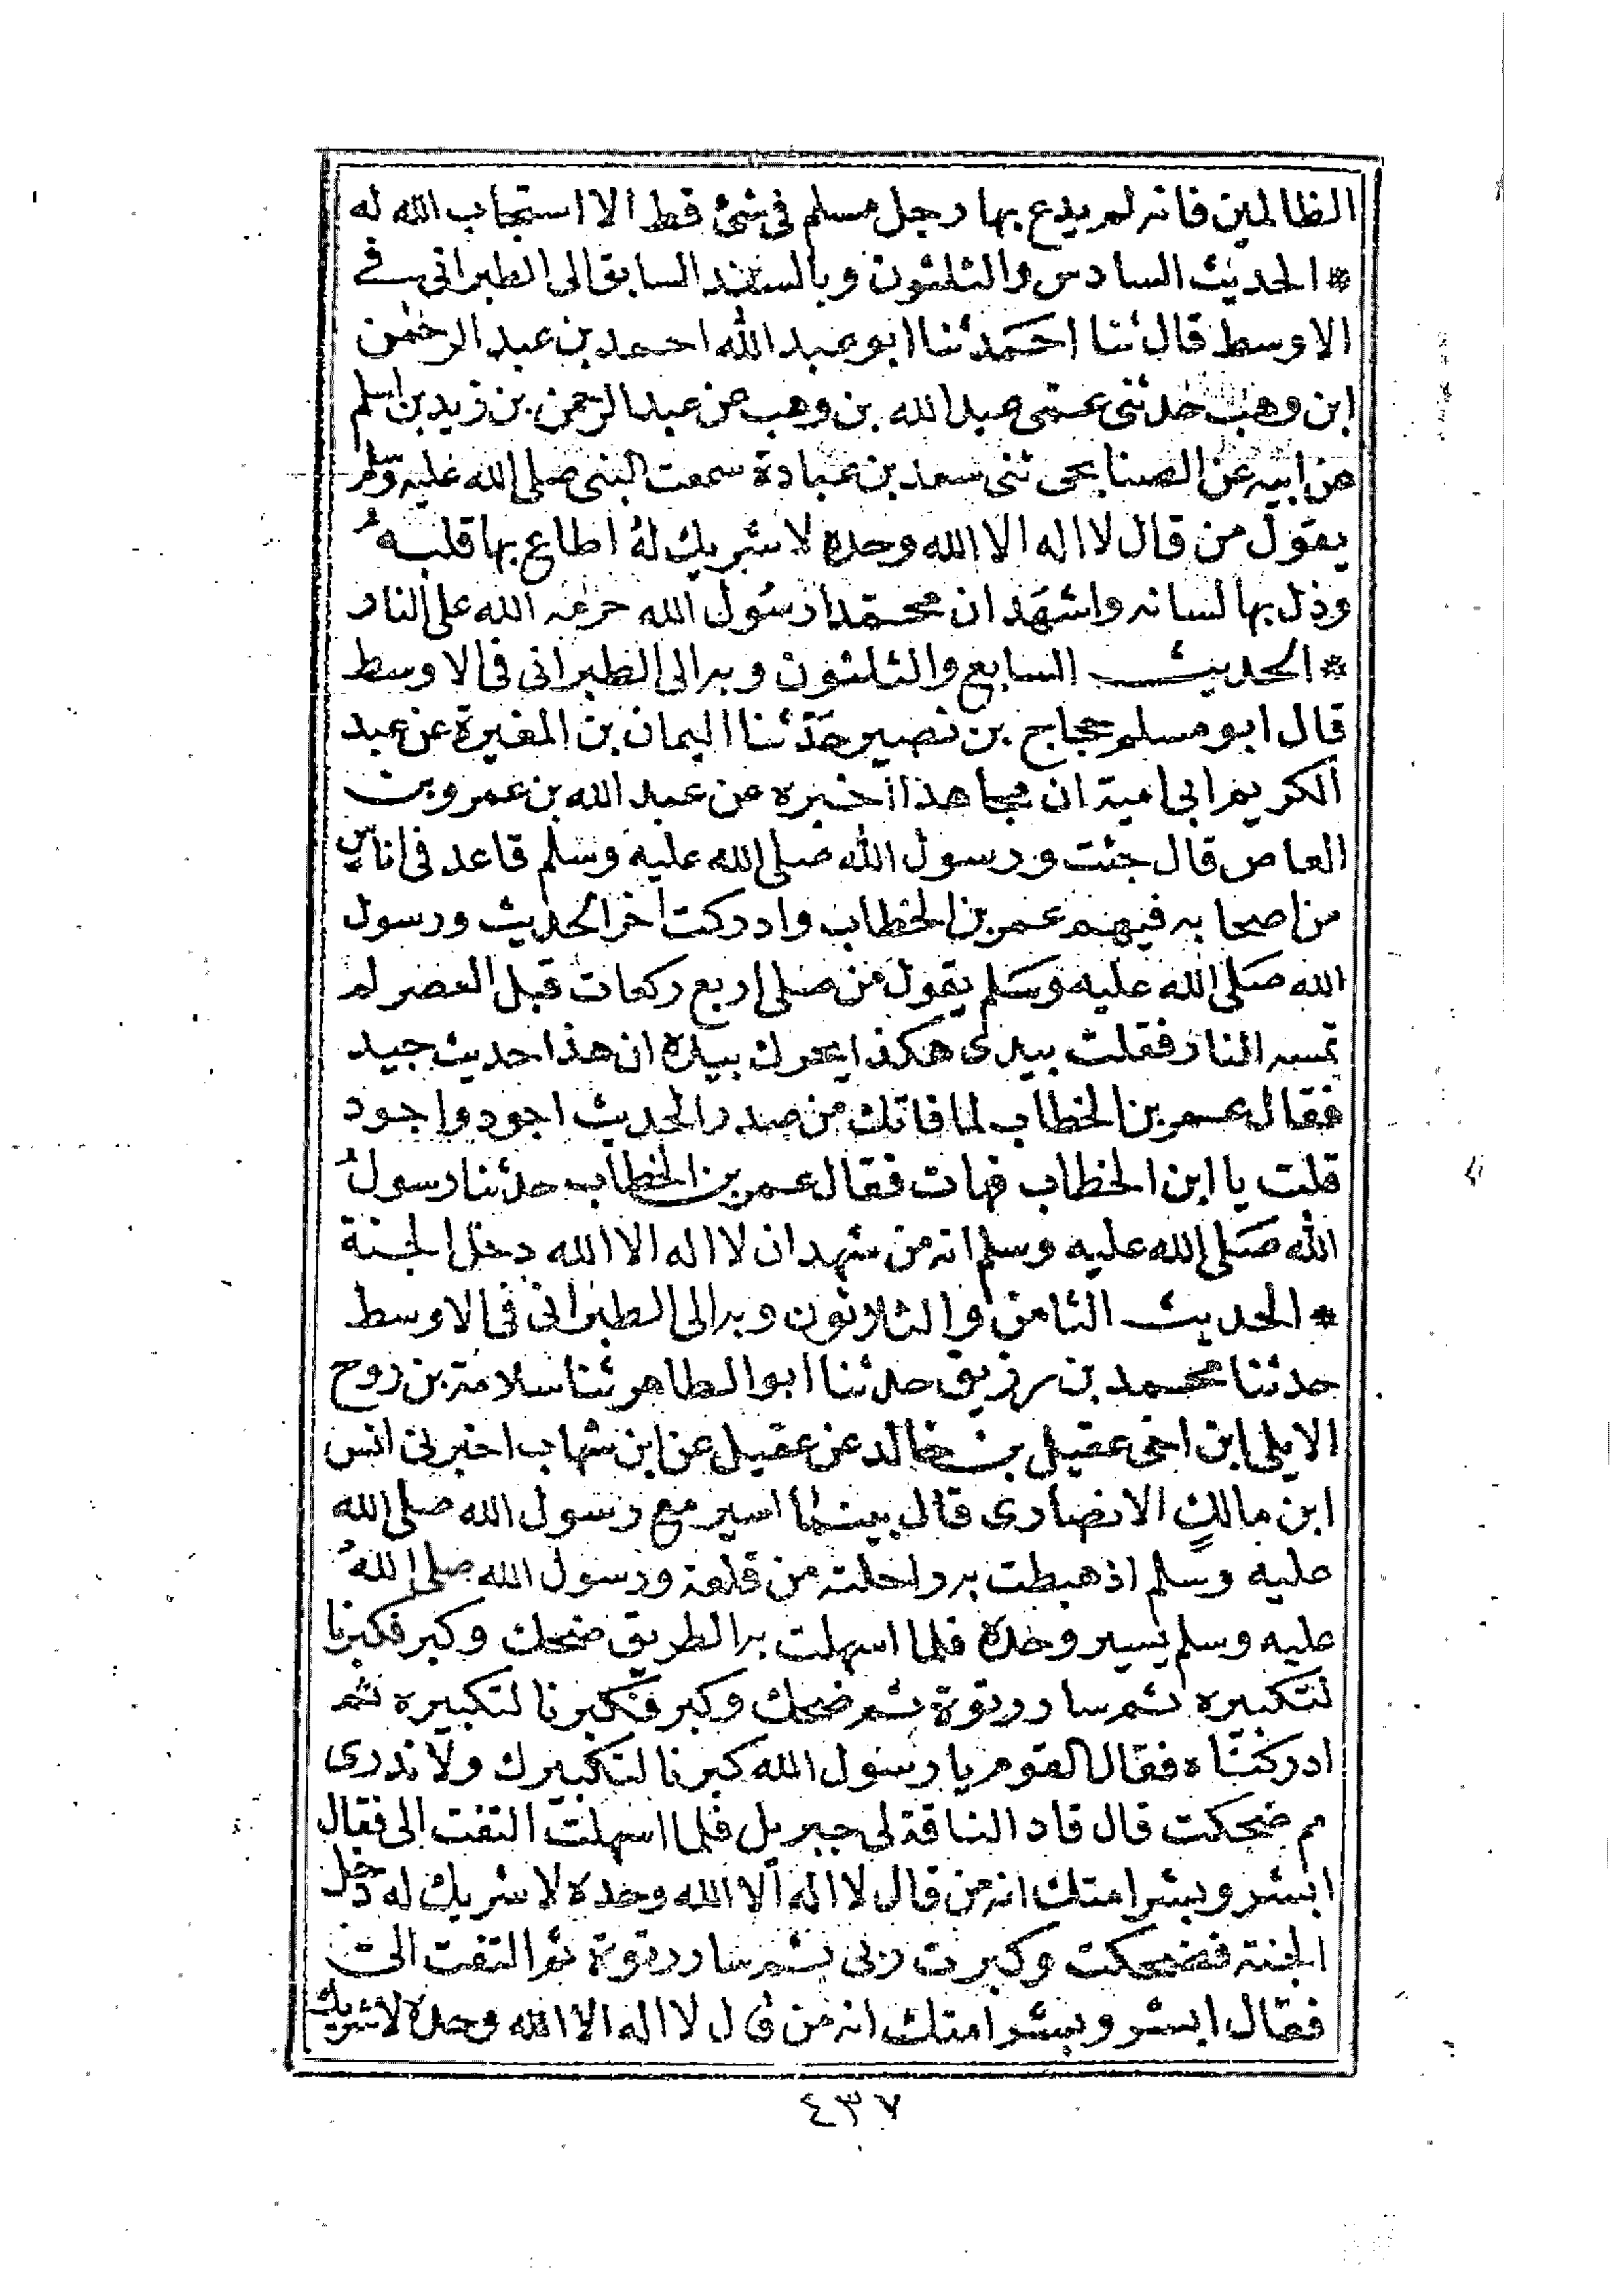 الظالمين فانه لم يدع بها رجل مسلم فى شئ قط الا استجاب الله له
* الحديث السادس والثلثون وبالسند السابق الى الطبرانى فى
الاوسط قال ثنا احمد ثنا ابو عبد الله احمد بن عبد الرحمن
ابن وهب حدثنى عمى عبد الله بن وهب عن عبد الرحمن بن زيد بن اسلم
عن ابيه عن الصنابحى ثنى سعد بن عبادة سمعت النبى صلى الله عليه وسلم
يقول من قال لا اله الا الله وحده لا شريك له اطاع بها قلبه
وذل بها لسانه واشهد ان محمدا رسول الله حرمه الله على النار
* الحديث السابع والثلثون وبه الى الطبرانى فى الاوسط
قال ابو مسلم حجاج بن نصير حدثنا اليمان بن المغيرة عن عبد
الكريم ابى امية ان مجاهدا اخبره عن عبد الله بن عمرو بن
العاص قال جئت ورسول الله صلى الله عليه وسلم قاعد فى اناس
من اصحابه فيهم عمر بن الخطاب وادركت اخر الحديث ورسول
الله صلى الله عليه وسلم يقول من صلى اربع ركعات قبل العصر لم
تمسه النار فقلت بيدى هكذا يحرك بيده ان هذا حديث جيد
فقال عمر بن الخطاب لما فاتك من صدر الحديث اجود واجود
قلت يا ابن الخطاب فهات فقال عمر بن الخطاب حدثنا رسول
الله صلى الله عليه وسلم انه من شهد ان لا اله الا الله دخل الجنة
* الحديث الثامن والثلاثون وبه الى الطبرانى فى الاوسط
حدثنا محمد بن رزيق حدثنا ابو الطاهر ثنا سلامة بن روح
الايلى ابن اخى عقيل بن خالد عن عقيل عن ابن شهاب اخبرنى انس
ابن مالك الانصارى قال بينما اسير مع رسول الله صلى الله
عليه وسلم اذ هبطت به راحلته من قلعة ورسول الله صلى الله
عليه وسلم يسير وحده فلما اسهلت به الطريق ضحك وكبر فكبرنا
لتكبيره ثم سار رتوة ثم ضحك وكبر فكبرنا لتكبيره ثم
ادركناه فقال القوم يا رسول الله كبرنا لتكبيرك ولا ندرى
مم ضحكت قال قاد الناقة لى جبريل فلما اسهلت التفت الى فقال
ابشر وبشر امتك انه من قال لا اله الا الله وحده لا شريك له دخل
الجنة فضحكت وكبرت ربى ثم سار رتوة ثم التفت الى
فقال ابشر وبشر امتك انه من قال لا اله الا الله وحده لا شريك
٤٣٧